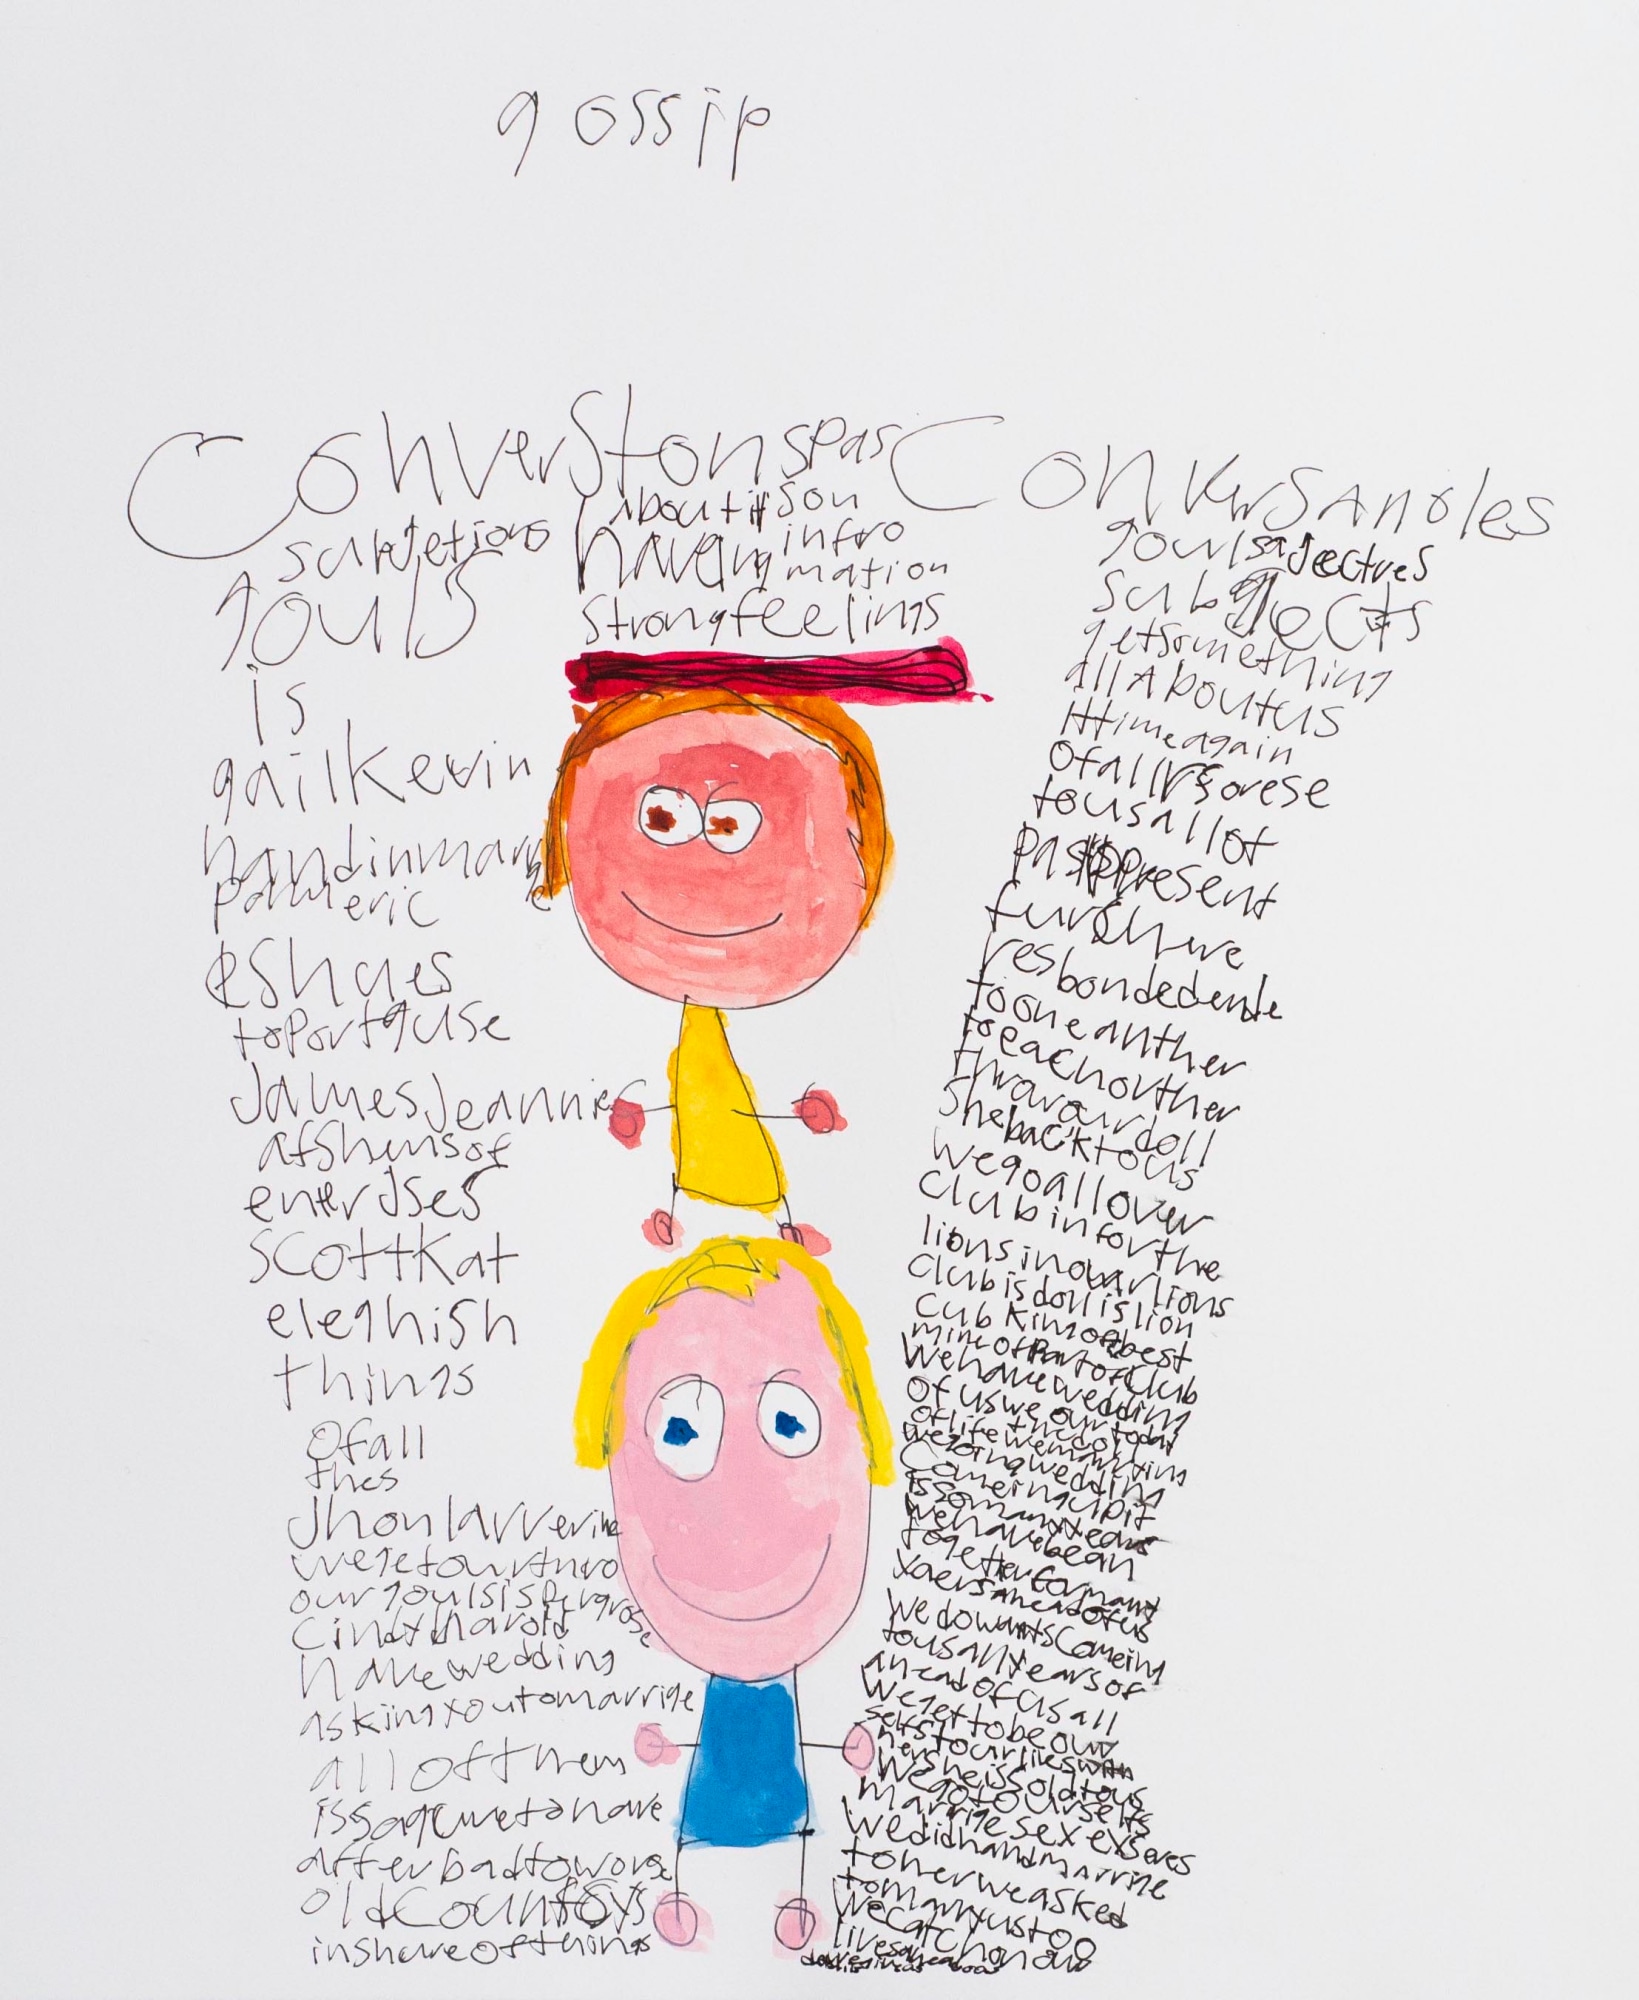 gossip
Converstonspas
Conversanoles
subjetions
gouls
is
gailkevin
handinmarre
pameric
eshues
toportguse
JamesJeannie
afshunsof
enterJses
scottkat
eleghish
things
ofall
thes
Jhonlarrerine
wegetourthro
ourgoulsispurgrose
Cindyharold
havewedding
askingyoutomarrige
allofthem
issagewetohave
afterbadtoworse
oldcountoys
inshareofthings
aboutitson
having infro
mation
strongfeelings
goulsadjectves
subgects
getsomething
allAboutus
Ittimeagain
ofallvsorese
tousallof
pastppresent
furchwe
respondedende
toone anther
toeachorther
throurdoll
shebacktous
wegoallover
clubinforthe
lionsinourlions
clubisdollislion
cubKimofbest
mineofpartofclub
wehavewedding
ofuswe ourtoday
oflifethecold
wegoingwedding
Comeingupit
issomanyyears
wehavebean
togetherformany
yaersaheadofus
wedowantscomeing
tousallyearsof
aheadofusall
wegettobeour
selfstourlifeswith
hersheissoldtous
wegotourselfs
marrige sexexsoves
wedidhandmarrine
toherweasked
tomanyustoo
wecatchonour